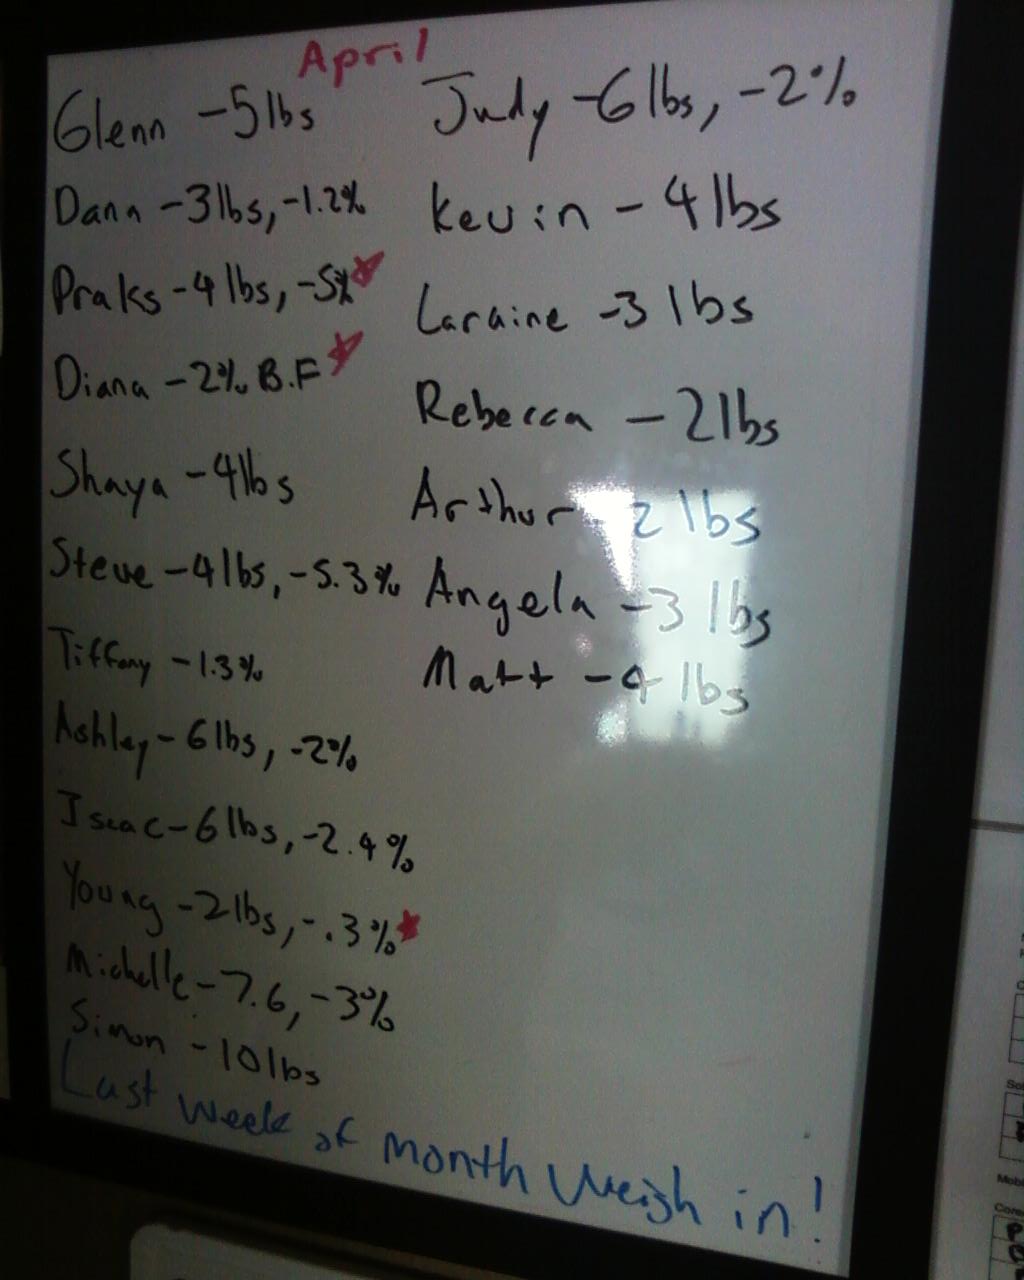 April
Glenn -5lbs
Dana -3lbs, -1.2%
Praks -4 lbs, -5%
Diana -2% B.F
Shaya -4lbs
Steve -4lbs, -5.3%
Tiffany -1.3%
Ashley - 6lbs, -2%
Iseac - 6 lbs, -2.4%
Young -2lbs, -.3%
Michelle -7.6, -3%
Simon -10lbs
Judy -6lbs, -2%
Kevin - 4lbs
Laraine -3 lbs
Rebecca - 2lbs
Arthur - 2 lbs
Angela -3 lbs
Matt -4 lbs
Last week of month weigh in!